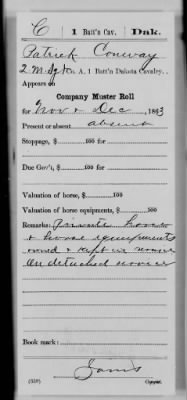 C | 1 Batt'n Cav. | Dak.
Patrick Conway
2 M. Sgt Co. A, 1 Batt'n Dakota Cavalry.
Appears on
Company Muster Roll
for Nov & Dec, 1863
Present or absent absent
Stoppage, $ 100 for
Due Gov't, $ 100 for
Valuation of horse, $ 100
Valuation of horse equipments, $ 100
Remarks: Private horse
& horse equipments
owned & kept in service
On detached service
Book mark:
(358) Copyist.